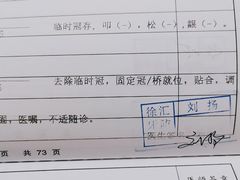 临时冠存，叩（-），松（-），龈（-）。
去除临时冠，固定冠/桥就位，贴合，调
医嘱，不适随诊。
徐汇 刘扬
医生签
页 共 73 页